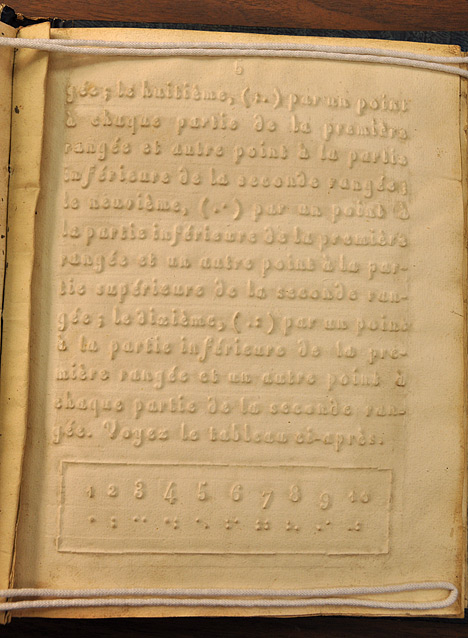 6
gée; le huitième, (⠆.) par un point
à chaque partie de la première
rangée et autre point à la partie
inférieure de la seconde rangée;
le neuvième, (.·) par un point à
la partie inférieure de la première
rangée et un autre point à la par-
tie supérieure de la seconde ran-
gée; le dixième, (.:) par un point
à la partie inférieure de la pre-
mière rangée et un autre point à
chaque partie de la seconde ran-
gée. Voyez le tableau ci-après:
1 2 3 4 5 6 7 8 9 10